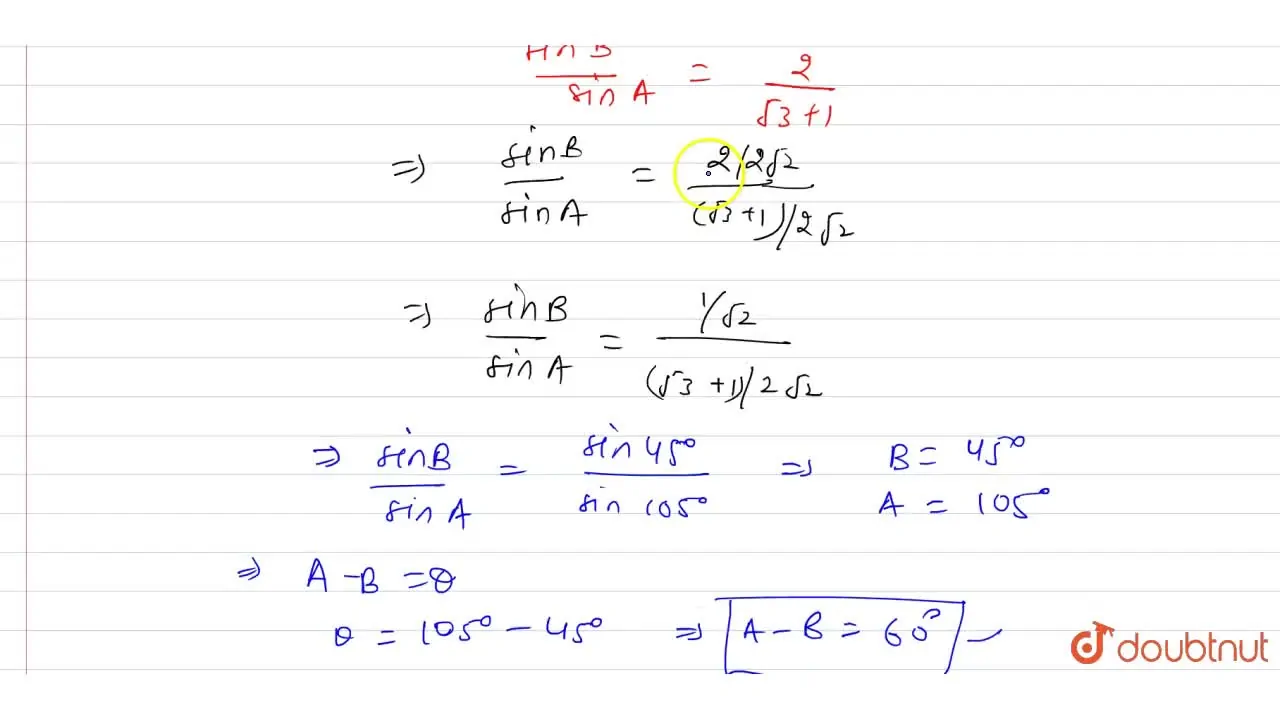 sin B / sin A = 2 / √3 + 1
⇒ sin B / sin A = 2/2√2 / (√3 + 1)/2√2
⇒ sin B / sin A = 1/√2 / (√3 + 1)/2√2
⇒ sin B / sin A = sin 45° / sin 105° ⇒ B = 45°
A = 105°
⇒ A - B = θ
θ = 105° - 45° ⇒ A - B = 60°
doubtnut